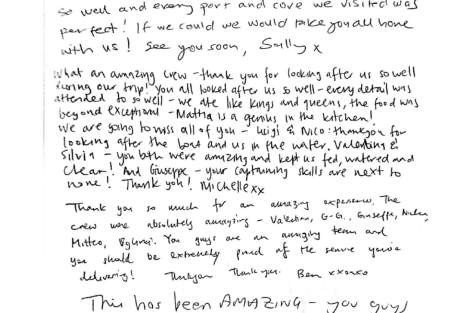 so well and every port and cove we visited was
perfect! If we could we would take you all home
with us! See you soon, Sally x
What an amazing crew - thank you for looking after us so well
during our trip! You all looked after us so well - every detail was
attended to so well - we ate like kings and queens, the food was
beyond exceptional - Mattia is a genius in the kitchen!
We are going to miss all of you - Luigi & Nico: thankyou for
looking after the boat and us in the water. Valentina &
Silvia - you both were amazing and kept us fed, watered and
clean! And Giuseppe - your captaining skills are next to
none! Thank you! Michelle xx
Thank you so much for an amazing experience. The
crew were absolutely amazing - Valentina, G-G, Giuseppe,
Matteo, You guys are an amazing team and
you should be extremely proud of the service you're
delivering! Thankyou Thank you. Ben
This has been AMAZING - you guys